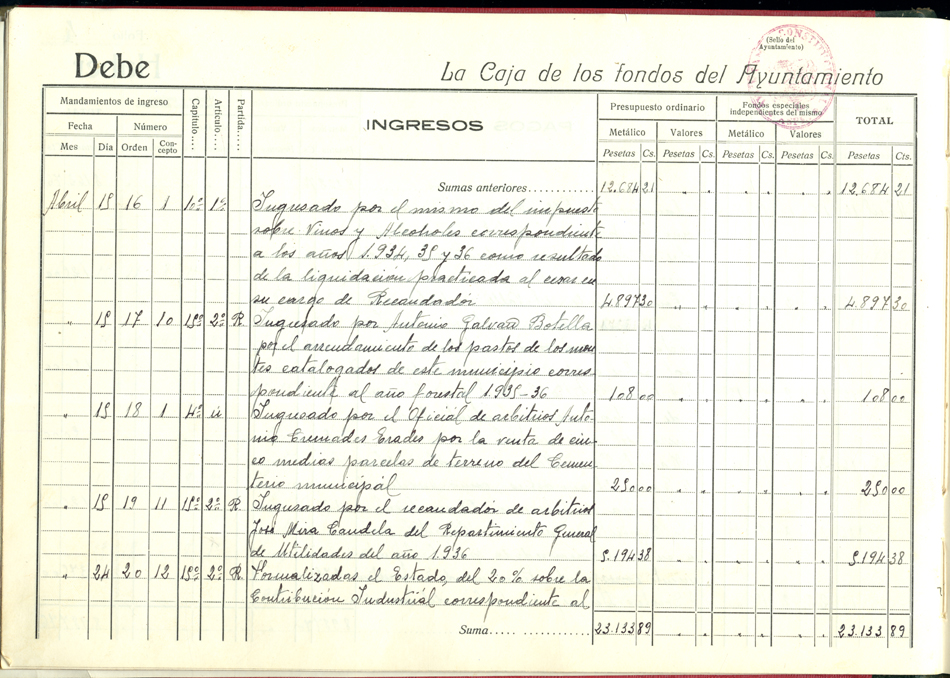 (Sello del
Ayuntamiento)
Debe
La Caja de los fondos del Ayuntamiento
Mandamientos de ingreso
Fecha
Número
Mes
Día
Orden
Concepto
Capítulo.....
Artículo....
Partida.....
INGRESOS
Presupuesto ordinario
Metálico
Valores
Pesetas Cs. Pesetas Cs.
Fondos especiales
independientes del mismo
Metálico
Valores
Pesetas Cs. Pesetas Cs.
TOTAL
Pesetas Cts.
Sumas anteriores............ 12.684 21 12.684 21
Abril 15 16 1 10º 1º Ingresado por el mismo del impuesto
sobre Vinos y Alcoholes correspondiente
a los años 1.934, 35 y 36 como resultado
de la liquidación practicada al cesar en
su cargo de Recaudador 4.897 30 4.897 30
" 15 17 10 15º 2º R. Ingresado por Antonio Galvañ Botella
por el arrendamiento de los pastos de los mon-
tes catalogados de este municipio corres-
pondiente al año forestal 1.935-36 108 00 108 00
" 15 18 1 4º Ingresado por el Oficial de arbitrios Anto-
nio Cremades Erades por la venta de cin-
co medias parcelas de terreno del Cemen-
terio municipal 250 00 250 00
" 15 19 11 15º 2º R. Ingresado por el recaudador de arbitrios
José Mira Candela del Repartimiento General
de Utilidades del año 1.936 5.194 38 5.194 38
" 24 20 12 15º 2º R. Formalizadas el Estado, del 20% sobre la
Contribución Industrial correspondiente al
Suma..... ............ 23.133 89 23.133 89